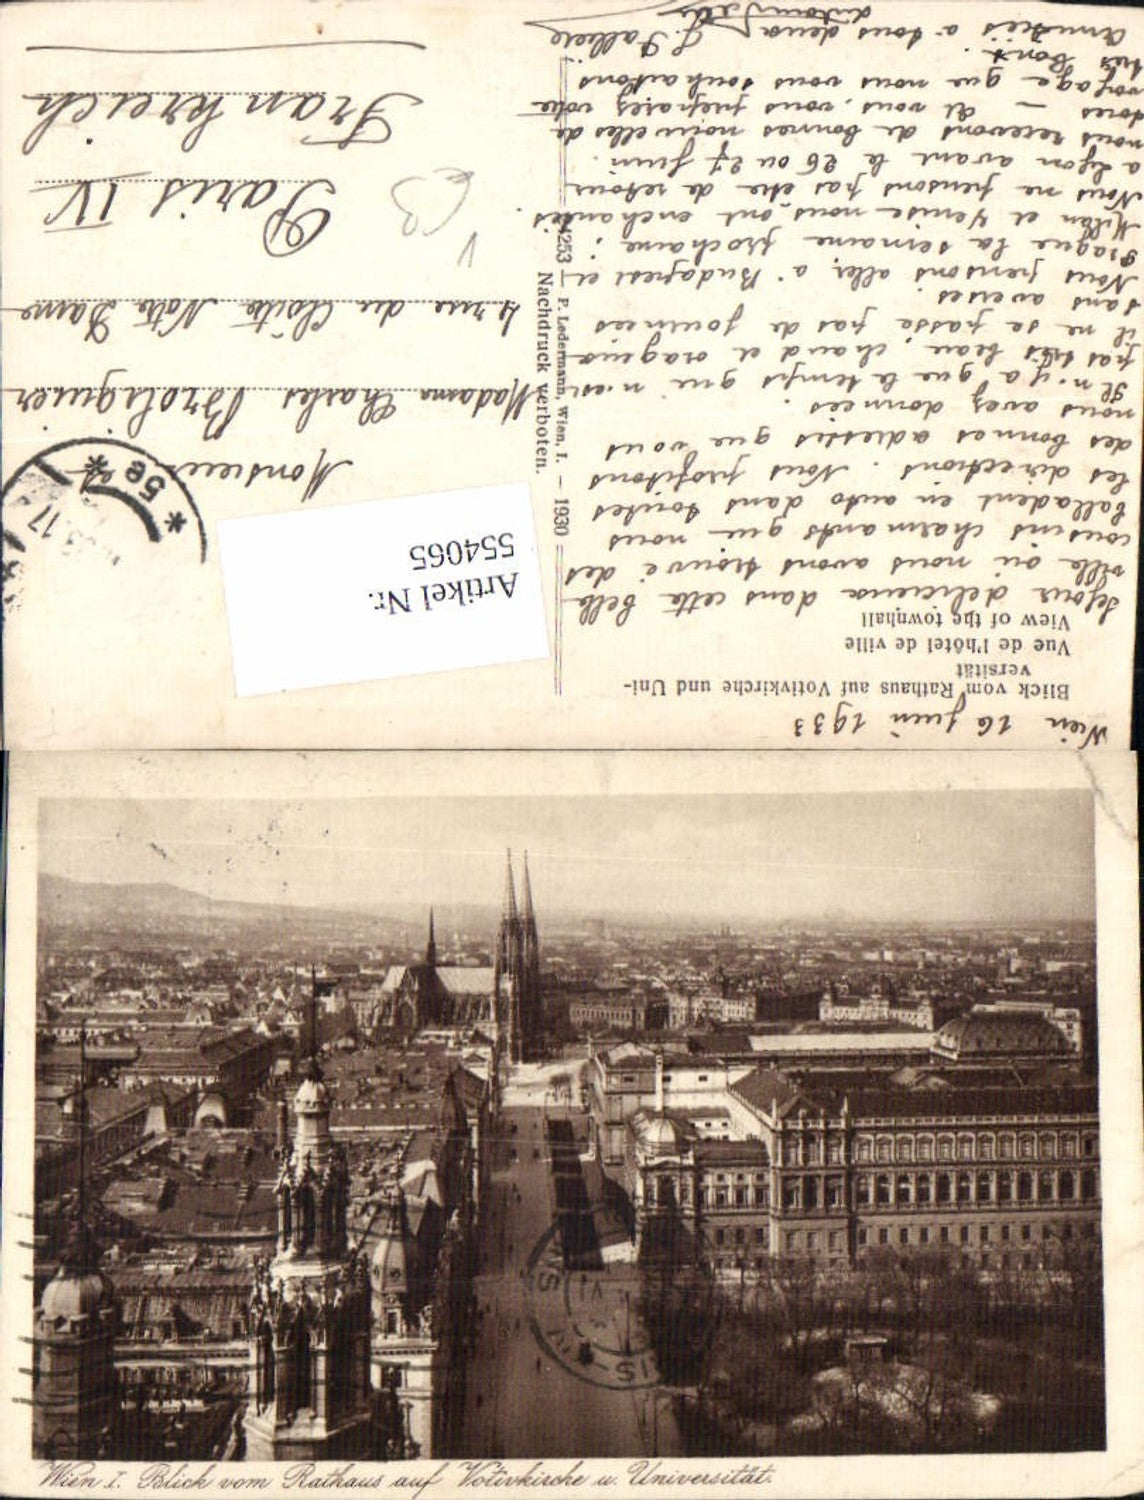 Wien 16 Juin 1933
Blick vom Rathaus auf Votivkirche und Uni-
versität
Vue de l'hôtel de ville
View of the townhall
Séjour délicieux dans cette belle
ville où nous avons trouvé des
cousins charmants qui nous
balladent en auto dans toutes
les directions. Nous profitons
des bonnes adresses que vous
nous avez données.
Il n'y a que le temps qui n'est
pas très beau, chaud et orageux
il ne se passe pas de journées
sans averses.
Nous pensons aller à Budapest et
Prague la semaine prochaine;
Milan et Venise nous ont enchantés.
Nous ne pensons pas être de retour
à Lyon avant le 26 ou 27 Juin.
nous recevons de bonnes nouvelles de
tores — et vous, vous préparez votre
voyage que nous vous souhaitons
très bon.
Amitiés à tous deux
4253 — P. Ledermann, Wien, I. — 1930
Nachdruck verboten.
Artikel Nr.
554065
5e
17
Monsieur et
Madame Charles Broliquier
4 rue du Cloître Notre Dame
Paris IV
Frankreich
€3
Wien I. Blick vom Rathaus auf Votivkirche u. Universität.